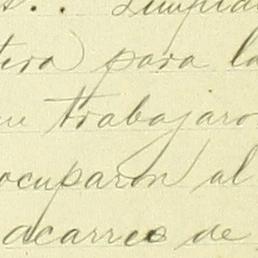 s.. Limpia
tera para la
ue trabajaro
ocuparon al
acarreo de